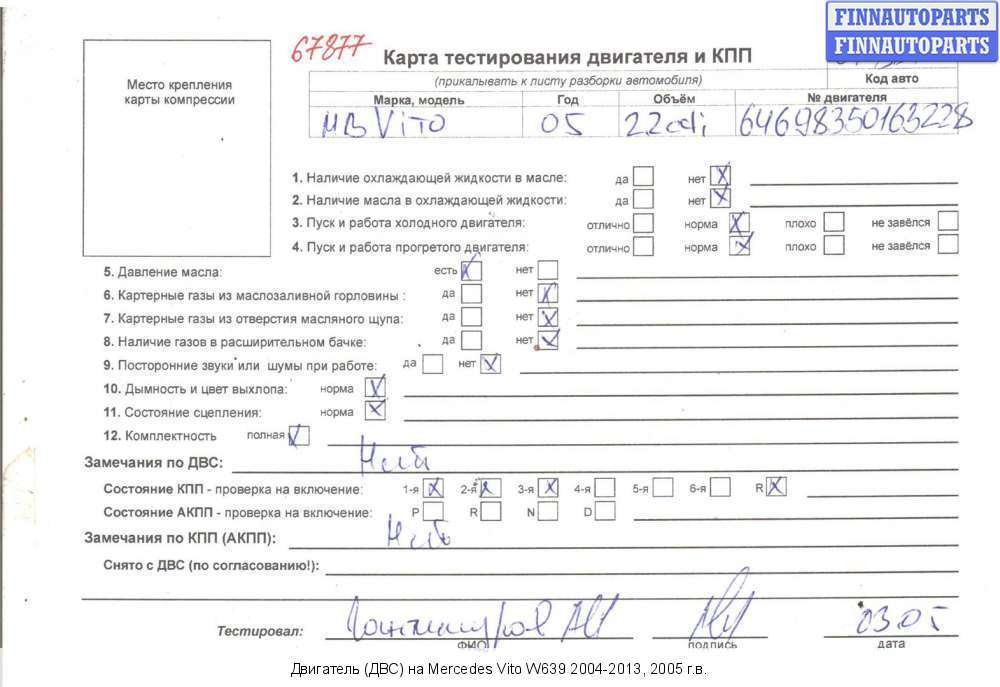 FINNAUTOPARTS
FINNAUTOPARTS
67877
Карта тестирования двигателя и КПП
(прикалывать к листу разборки автомобиля)
Код авто
Место крепления
карты компрессии
Марка, модель Год Объём № двигателя
MB Vito 05 2.2 cdi 64698350163228
1. Наличие охлаждающей жидкости в масле: да нет X
2. Наличие масла в охлаждающей жидкости: да нет X
3. Пуск и работа холодного двигателя: отлично норма X плохо не завёлся
4. Пуск и работа прогретого двигателя: отлично норма X плохо не завёлся
5. Давление масла: есть X нет
6. Картерные газы из маслозаливной горловины : да нет X
7. Картерные газы из отверстия масляного щупа: да нет X
8. Наличие газов в расширительном бачке: да нет X
9. Посторонние звуки или шумы при работе: да нет X
10. Дымность и цвет выхлопа: норма X
11. Состояние сцепления: норма X
12. Комплектность полная X
Замечания по ДВС: Нет
Состояние КПП - проверка на включение: 1-я X 2-я X 3-я X 4-я 5-я 6-я R X
Состояние АКПП - проверка на включение: P R N D
Замечания по КПП (АКПП): Нет
Снято с ДВС (по согласованию!):
Тестировал: 03.05
ФИО подпись дата
Двигатель (ДВС) на Mercedes Vito W639 2004-2013, 2005 г.в.